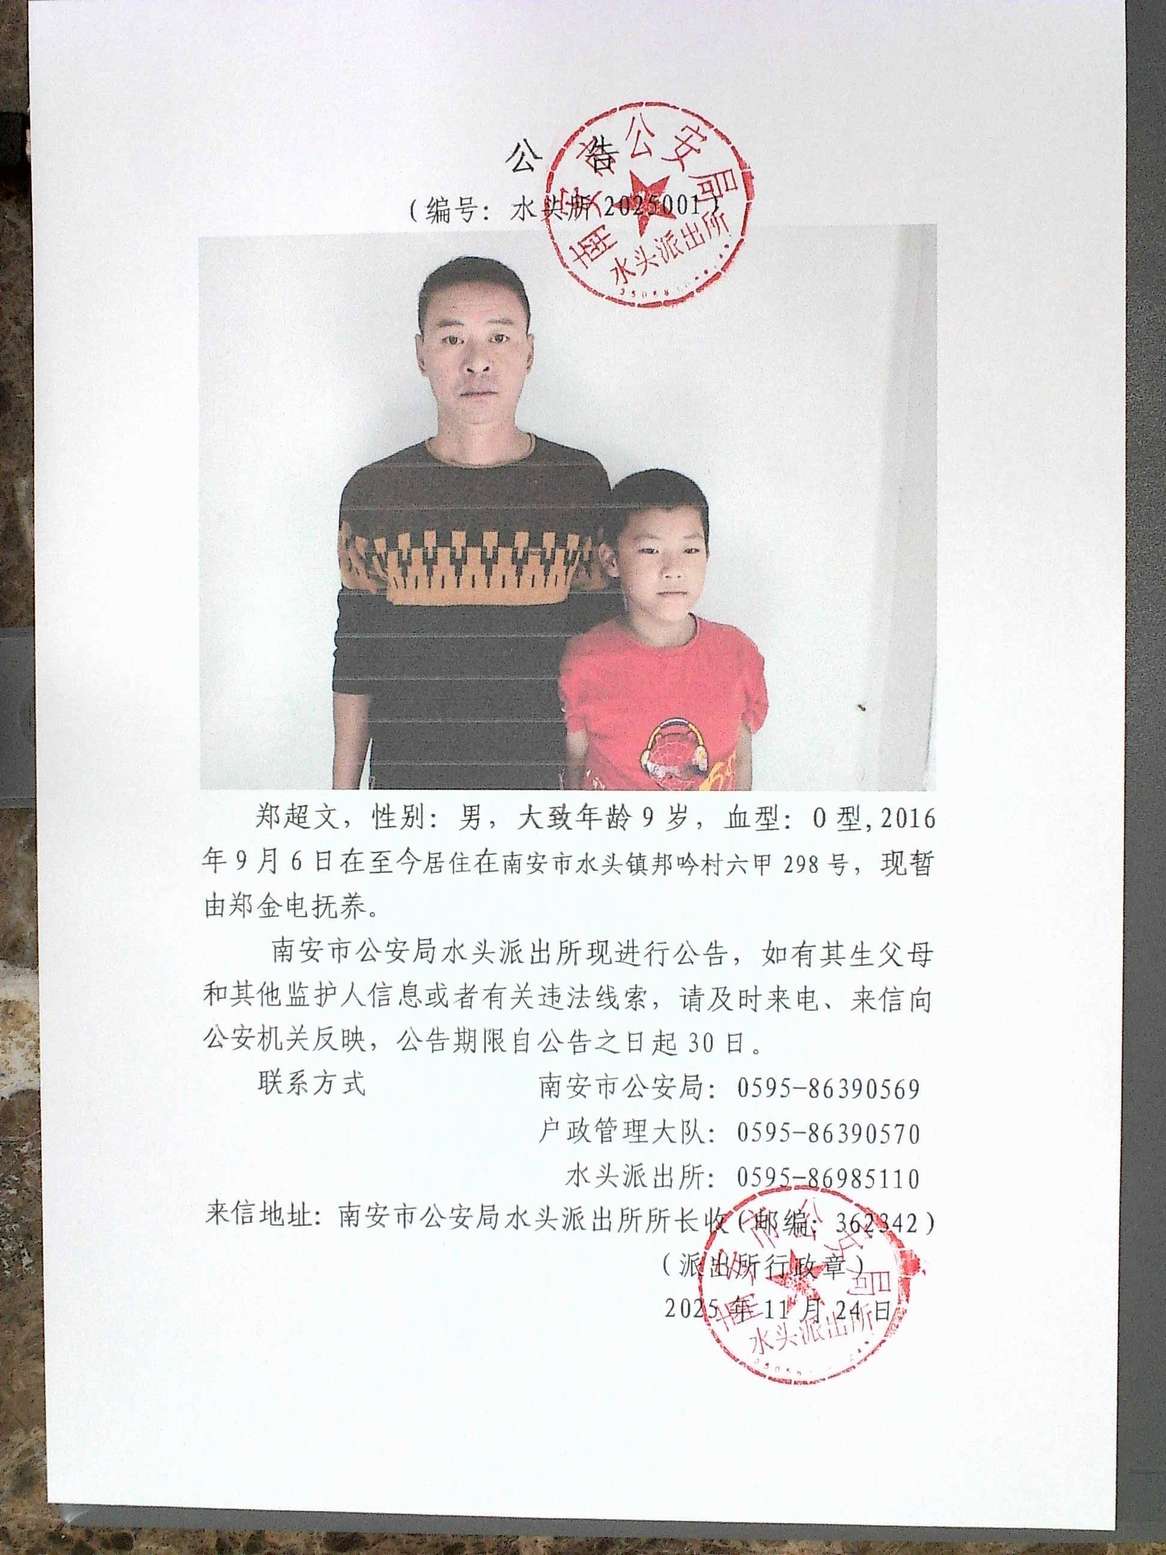 公 告
（编号：水头所 2025001）
南安市公安局
水头派出所
郑超文，性别：男，大致年龄 9 岁，血型：O 型, 2016
年 9 月 6 日在至今居住在南安市水头镇邦吟村六甲 298 号，现暂
由郑金电抚养。
南安市公安局水头派出所现进行公告，如有其生父母
和其他监护人信息或者有关违法线索，请及时来电、来信向
公安机关反映，公告期限自公告之日起 30 日。
联系方式 南安市公安局：0595-86390569
户政管理大队：0595-86390570
水头派出所：0595-86985110
来信地址：南安市公安局水头派出所所长收（邮编：362342）
（派出所行政章）
2025 年 11 月 24 日
南安市公安局
水头派出所